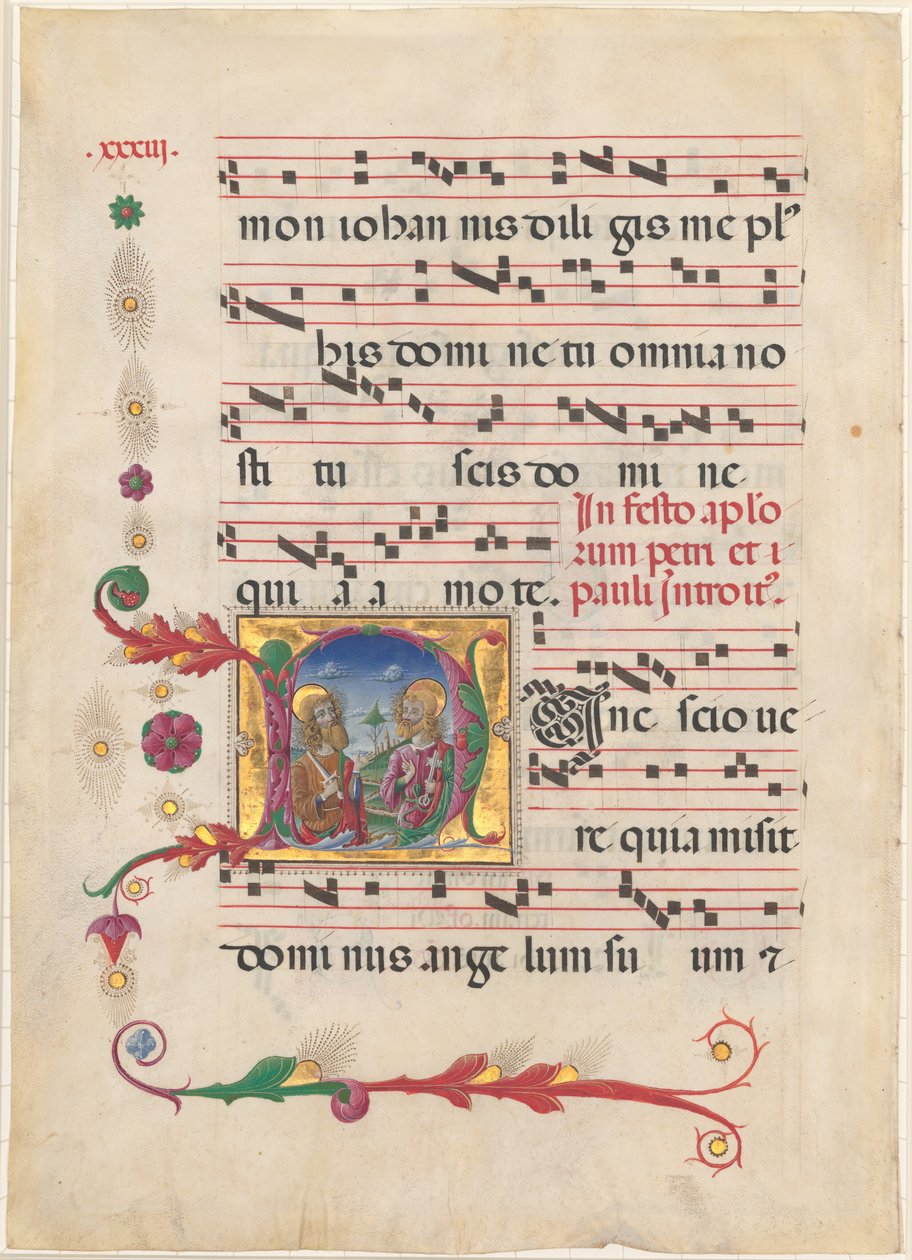 .xxxiij.
mon iohan nis dili gis me pl'
his domi ne tu omnia no
sti tu scis do mi ne
qui a a mo te.
In festo ap'lo
rum petri et
pauli Introit'.
Nunc scio ve
re quia misit
domi nus ange lum su um